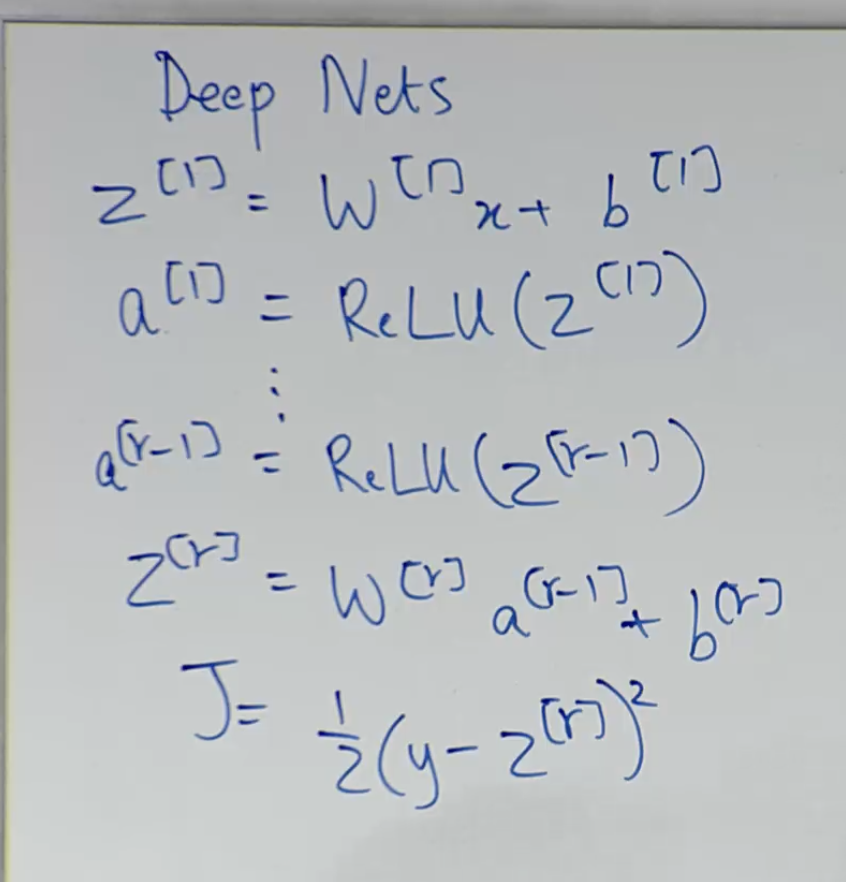 Deep Nets
z^[1] = W^[1] x + b^[1]
a^[1] = ReLU(z^[1])
⋮
a^[r-1] = ReLU(z^[r-1])
z^[r] = W^[r] a^[r-1] + b^[r]
J = 1/2 (y - z^[r])^2